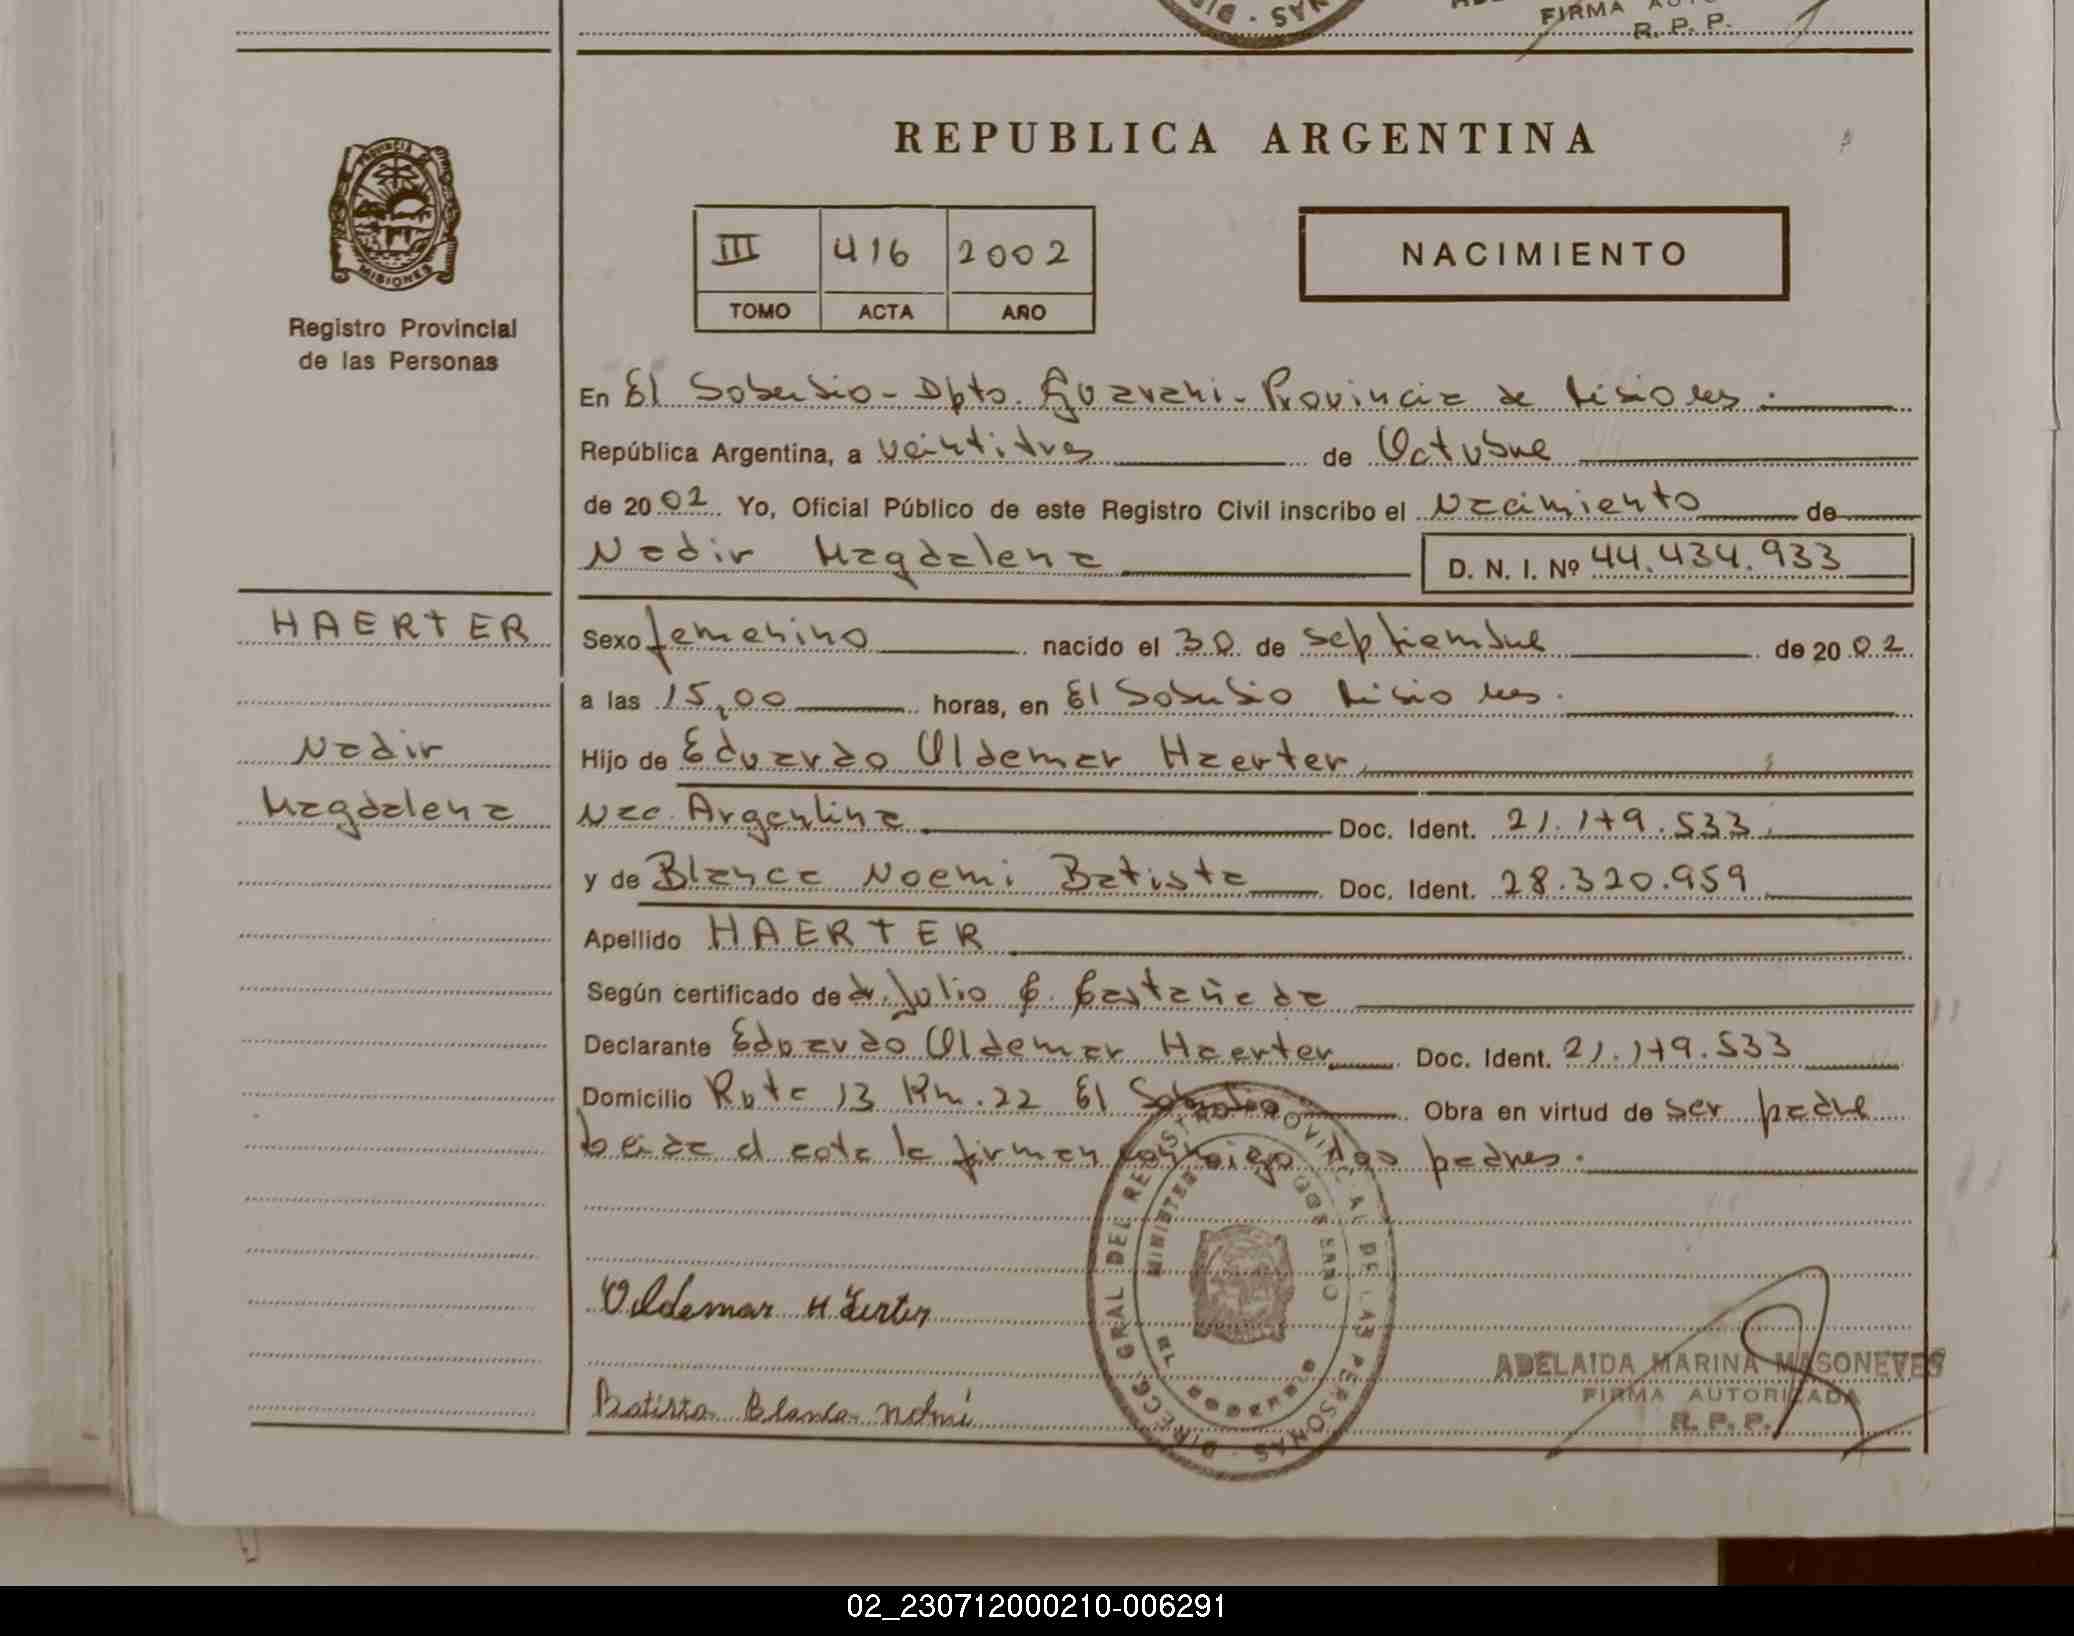 FIRMA AUTO
R. P. P.
PROVINCIA DE
MISIONES
Registro Provincial
de las Personas
REPUBLICA ARGENTINA
III 416 2002
TOMO ACTA AÑO
NACIMIENTO
En El Soberbio - Dpto. Guarani - Provincia de Misiones.
República Argentina, a veintitres de Octubre
de 2002 Yo, Oficial Público de este Registro Civil inscribo el Nacimiento de
Nadir Magdalena D. N. I. Nº 44.434.933
HAERTER
Nadir
Magdalena
Sexo femenino nacido el 30 de septiembre de 2002
a las 15,00 horas, en El Soberbio Misiones.
Hijo de Eduardo Oldemar Haerter
Nac. Argentina Doc. Ident. 21.179.533
y de Blanca Noemi Batista Doc. Ident. 28.320.959
Apellido HAERTER
Según certificado de dr. Julio C. Castañeda
Declarante Eduardo Oldemar Haerter Doc. Ident. 21.179.533
Domicilio Ruta 13 Km. 22 El Soberbio Obra en virtud de ser padre
Leida el acta la firman conmigo los padres.
Oldemar Haerter
Batista Blanca Noemi
DIRECC. GRAL DEL REGISTRO PROVINCIAL DE LAS PERSONAS
EL SOBERBIO
ADELAIDA MARINA MASONEVES
FIRMA AUTORIZADA
R. P. P.
02_230712000210-006291